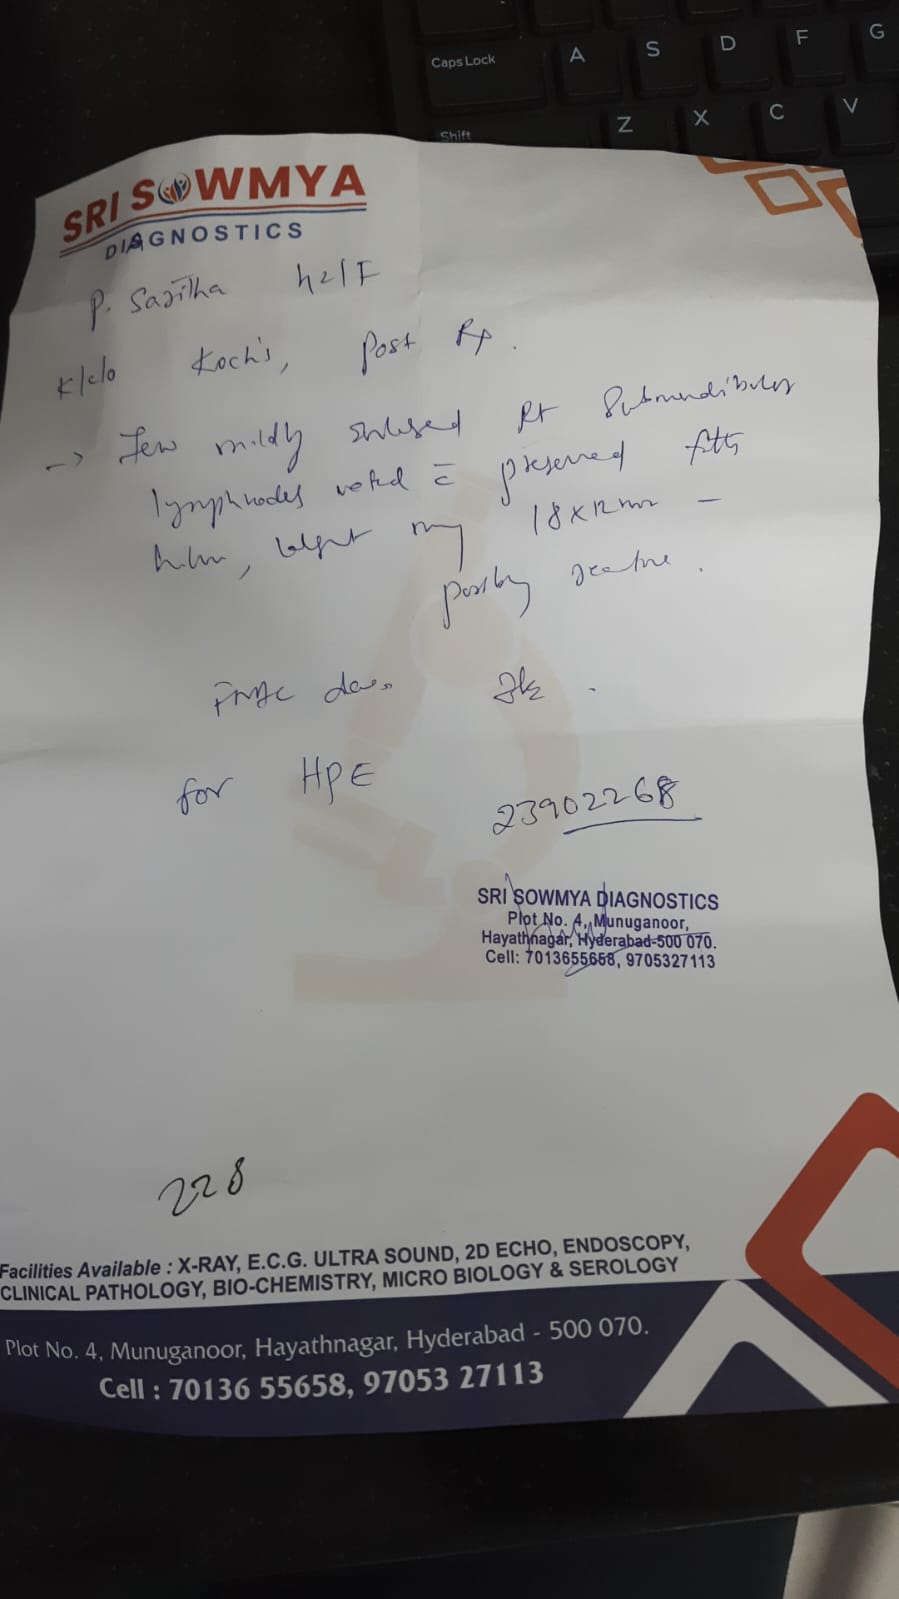 Caps Lock A S D F G
Shift Z X C V
SRI SOWMYA
DIAGNOSTICS
P. Saritha 42/F
K/c/o Koch's, Post Rp.
→ Few mildly enlarged Rt Submandibular
lymphnodes noted c̄ preserved fatty
hilum, largest 18x12mm –
possibly reactive.
FNAC
for HPE
23902268
SRI SOWMYA DIAGNOSTICS
Plot No. 4, Munuganoor,
Hayathnagar, Hyderabad-500 070.
Cell: 7013655658, 9705327113
228
Facilities Available : X-RAY, E.C.G. ULTRA SOUND, 2D ECHO, ENDOSCOPY,
CLINICAL PATHOLOGY, BIO-CHEMISTRY, MICRO BIOLOGY & SEROLOGY
Plot No. 4, Munuganoor, Hayathnagar, Hyderabad - 500 070.
Cell : 70136 55658, 97053 27113